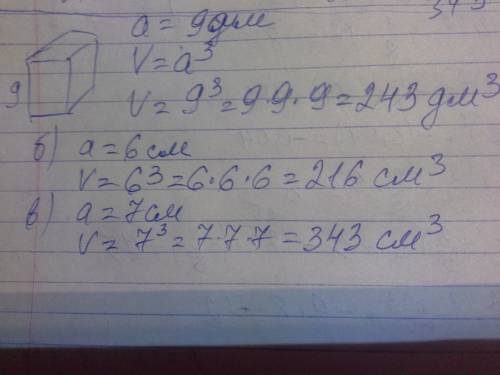 a = 9дм
V = a³
9
V = 9³ = 9·9·9 = 243 дм³
б) a = 6 см
V = 6³ = 6·6·6 = 216 см³
в) a = 7 см
V = 7³ = 7·7·7 = 343 см³